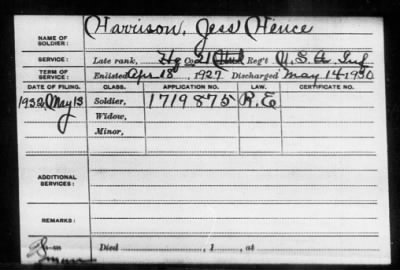 NAME OF SOLDIER: Harrison, Jess Hence
SERVICE: Late rank, Hq Co. 21 Reg't U.S.A. Inf
TERM OF SERVICE: Enlisted Apr 18, 1927 Discharged May 14 1930
DATE OF FILING. CLASS. APPLICATION NO. LAW. CERTIFICATE NO.
1932, May 13 Soldier, 1719875 R.E
Widow,
Minor,
ADDITIONAL SERVICES:
REMARKS:
Died , 1 , at